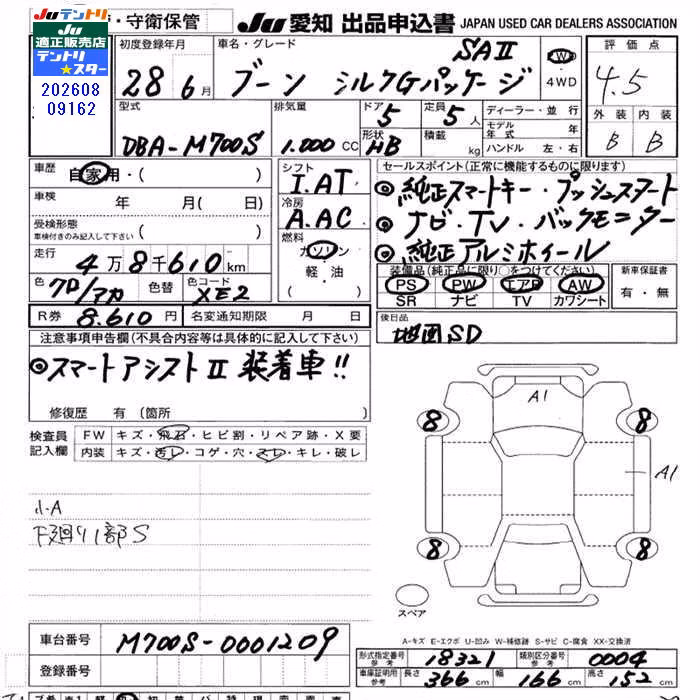 ・守衛保管
JU 愛知 出品申込書 JAPAN USED CAR DEALERS ASSOCIATION
JUテントリ
JU適正販売店
テントリ
★スター
202608
09162
初度登録年月 28年 6月
車名・グレード ブーン シルクGパッケージ SAⅡ
4WD
評価点 4.5
外装 B 内装 B
型式 DBA-M700S
排気量 1.000 CC
ドア 5
形状 HB
定員 5人
積載 kg
ディーラー・並行
モデル年式 年
ハンドル 左・右
車歴 自家用・( )
車検 年 月( 日)
受検形態 ・( )
車検付きのみ記入して下さい
走行 4万8千610km
色 クロ/マカ 色替 色コード XE2
シフト I.AT
冷房 A.AC
燃料 ガソリン・軽油 ( )
セールスポイント(正常に機能するものに限ります)
◎純正スマートキー・プッシュスタート
◎ナビ・TV・バックモニター
◎純正アルミホイール
装備品(純正品に限り○をつけてください)
PS PW エアB AW
SR ナビ TV カワシート
新車保証書 有・無
R券 8.610円 名変通知期限 月 日
後日品 地図SD
注意事項申告欄(不具合内容等は具体的に記入して下さい)
◎スマートアシストⅡ 装着車!!
修復歴 有(箇所 )
検査員記入欄
FW キズ・飛石・ヒビ割・リペア跡・X要
内装 キズ・汚レ・コゲ・穴・スレ・キレ・破レ
小A
下廻り1部S
A1
8 8
A1
8 8
スペア
A-キズ E-エクボ U-凹み W-補修跡 S-サビ C-腐食 XX-交換済
車台番号 M700S-0001209
登録番号
形式指定番号 参考 18321 類別区分番号 参考 0004
車庫証明用 参考 長さ 366cm 幅 166cm 高さ 152cm